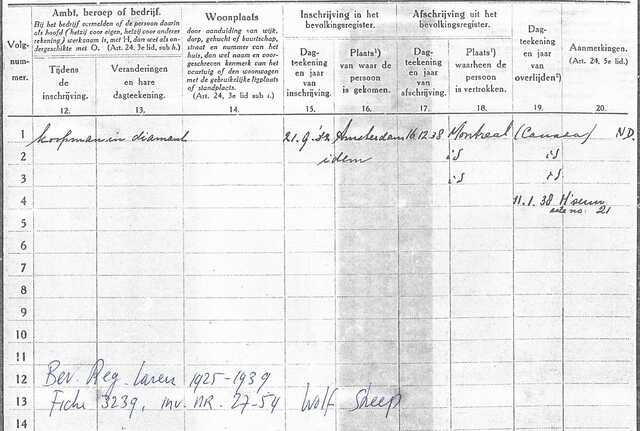 Volg-
num-
mer.
Ambt, beroep of bedrijf.
Bij het bedrijf vermelden of de persoon daarin
als hoofd (hetzij voor eigen, hetzij voor anderes
rekening) werkzaam is, met H, dan wel als on-
dergeschikte met O. (Art. 24, 3e lid, sub h.)
Tijdens
de
inschrijving.
12.
Veranderingen
en hare
dagteekening.
13.
Woonplaats
door aanduiding van wijk,
dorp, gehucht of buurtschap,
straat en nummer van het
huis, dan wel naam en voor-
geschreven kenmerk van het
vaartuig of den woonwagen
met de gebruikelijke ligplaats
of standplaats.
(Art. 24, 3e lid sub i.)
14.
Inschrijving in het
bevolkingsregister.
Dag-
teekening
en jaar
van
inschrijving.
15.
Plaats¹)
van waar de
persoon
is gekomen.
16.
Afschrijving uit het
bevolkingsregister.
Dag-
teekening
en jaar
van
afschrijving.
17.
Plaats¹)
waarheen de
persoon
is vertrokken.
18.
Dag-
teekening
en jaar
van
overlijden²)
19.
Aanmerkingen.
(Art. 24, 5e lid.)
20.
1 koopman in diamant 21.9.'32 Amsterdam 16.12.38 Montreal (Canada) N.D.
2 idem id id
3 id id
4 11.1.38 H'sum
acte no: 21
5
6
7
8
9
10
11
12 Bev. Reg. Laren 1925-1939
13 Fiche 3239, inv. nr. 27-54 Wolf Sheep
14